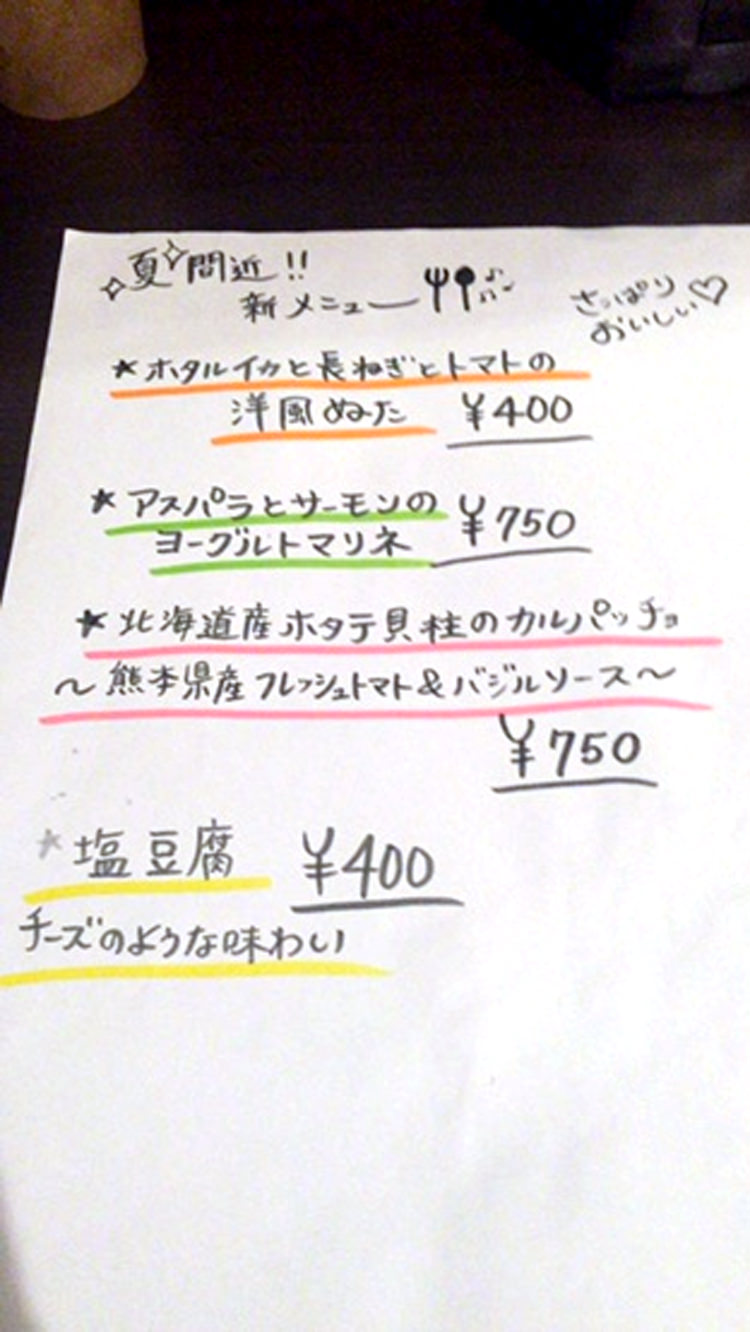 夏間近!!
新メニュー
さっぱり
おいしい♡
★ホタルイカと長ねぎとトマトの
洋風ぬた ¥400
★アスパラとサーモンの ¥750
ヨーグルトマリネ
★北海道産ホタテ貝柱のカルパッチョ
〜熊本県産フレッシュトマト&バジルソース〜
¥750
★塩豆腐 ¥400
チーズのような味わい